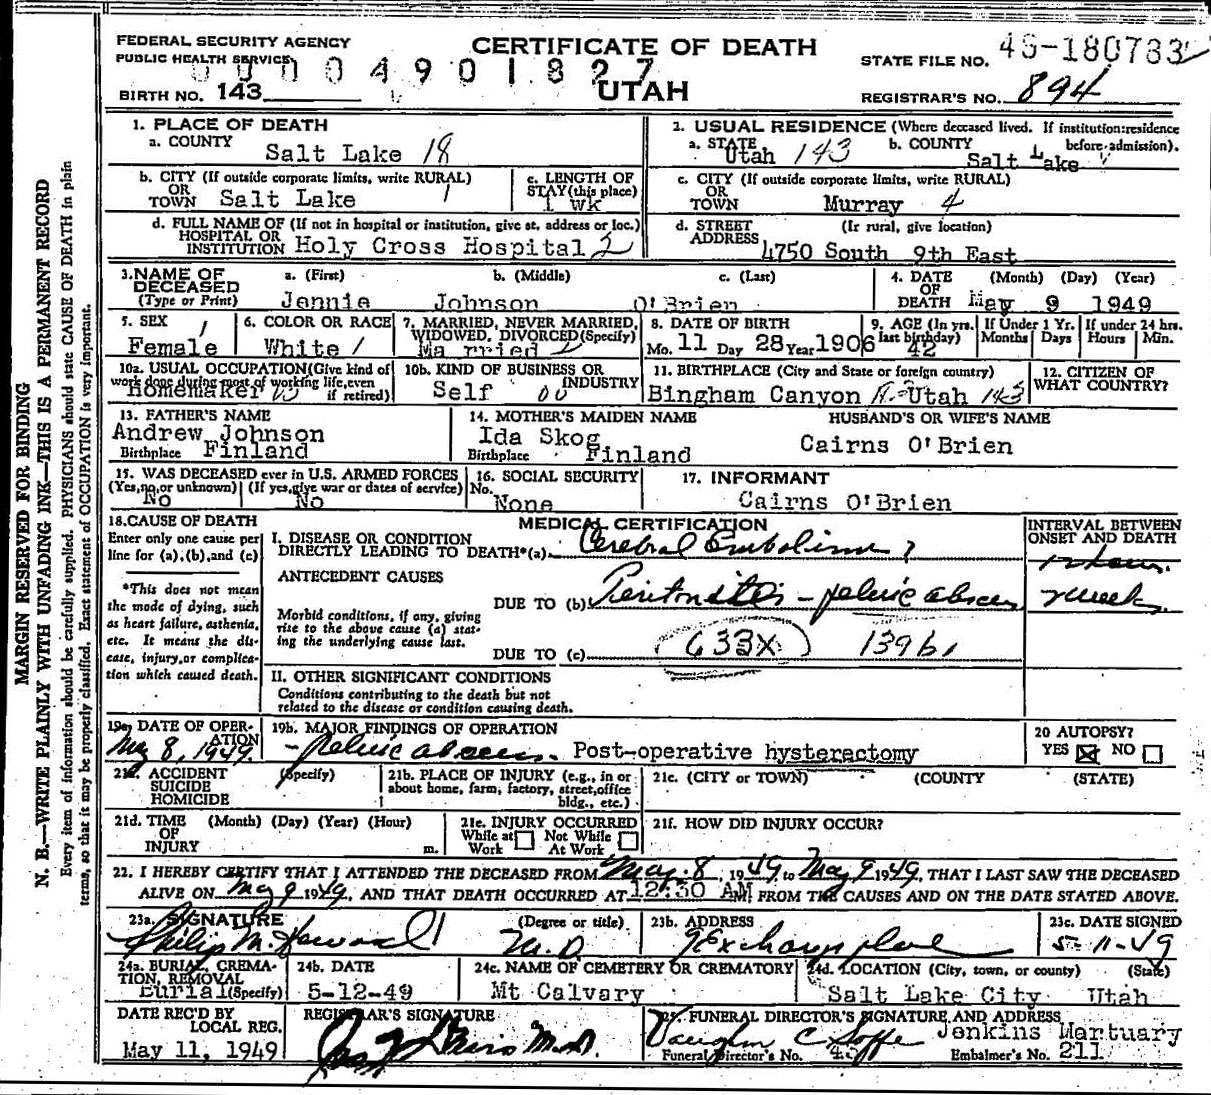 MARGIN RESERVED FOR BINDING
N. B.—WRITE PLAINLY WITH UNFADING INK—THIS IS A PERMANENT RECORD
Every item of information should be carefully supplied. PHYSICIANS should state CAUSE OF DEATH in plain
terms, so that it may be properly classified. Exact statement of OCCUPATION is very important.
FEDERAL SECURITY AGENCY
PUBLIC HEALTH SERVICE
CERTIFICATE OF DEATH
UTAH
STATE FILE NO. 49-180733
0 0 0 0 4 9 0 1 8 2 7
BIRTH NO. 143
REGISTRAR'S NO. 894
1. PLACE OF DEATH
a. COUNTY
Salt Lake 18
2. USUAL RESIDENCE (Where deceased lived. If institution:residence before admission).
a. STATE Utah 143 b. COUNTY Salt Lake
b. CITY (If outside corporate limits, write RURAL)
OR
TOWN Salt Lake 1
c. LENGTH OF
STAY (this place)
1 wk
c. CITY (If outside corporate limits, write RURAL)
OR
TOWN Murray 4
d. FULL NAME OF (If not in hospital or institution, give st. address or loc.)
HOSPITAL OR
INSTITUTION Holy Cross Hospital 2
d. STREET (If rural, give location)
ADDRESS 4750 South 9th East
3. NAME OF DECEASED
(Type or Print)
a. (First) b. (Middle) c. (Last)
Jennie Johnson O'Brien
4. DATE OF DEATH (Month) (Day) (Year)
May 9 1949
5. SEX 1
Female
6. COLOR OR RACE
White 1
7. MARRIED, NEVER MARRIED,
WIDOWED, DIVORCED (Specify)
Married
8. DATE OF BIRTH
Mo. 11 Day 28 Year 1906
9. AGE (In yrs. last birthday)
42
If Under 1 Yr.
Months Days
If under 24 hrs.
Hours Min.
10a. USUAL OCCUPATION (Give kind of
work done during most of working life, even
if retired)
Homemaker
10b. KIND OF BUSINESS OR
INDUSTRY
Self
11. BIRTHPLACE (City and State or foreign country)
Bingham Canyon Utah 143
12. CITIZEN OF
WHAT COUNTRY?
13. FATHER'S NAME
Andrew Johnson
Birthplace Finland
14. MOTHER'S MAIDEN NAME
Ida Skog
Birthplace Finland
HUSBAND'S OR WIFE'S NAME
Cairns O'Brien
15. WAS DECEASED ever in U.S. ARMED FORCES
(Yes, no, or unknown) (If yes, give war or dates of service)
No No
16. SOCIAL SECURITY
No.
None
17. INFORMANT
Cairns O'Brien
18. CAUSE OF DEATH
Enter only one cause per
line for (a), (b), and (c)
*This does not mean
the mode of dying, such
as heart failure, asthenia,
etc. It means the dis-
ease, injury, or complica-
tion which caused death.
MEDICAL CERTIFICATION
INTERVAL BETWEEN
ONSET AND DEATH
I. DISEASE OR CONDITION
DIRECTLY LEADING TO DEATH*(a) Cerebral Embolism ?
ANTECEDENT CAUSES
DUE TO (b) Peritonitis - pelvic abscess
Morbid conditions, if any, giving
rise to the above cause (a) stat-
ing the underlying cause last.
DUE TO (c) 633X 139b
II. OTHER SIGNIFICANT CONDITIONS
Conditions contributing to the death but not
related to the disease or condition causing death.
19a. DATE OF OPER-
ATION
May 8, 1949.
19b. MAJOR FINDINGS OF OPERATION
- pelvic abscess. Post-operative hysterectomy
20 AUTOPSY?
YES ☒ NO ☐
21a. ACCIDENT (Specify)
SUICIDE
HOMICIDE
21b. PLACE OF INJURY (e.g., in or
about home, farm, factory, street, office
bldg., etc.)
21c. (CITY or TOWN) (COUNTY) (STATE)
21d. TIME (Month) (Day) (Year) (Hour)
OF
INJURY m.
21e. INJURY OCCURRED
While at Work ☐ Not While At Work ☐
21f. HOW DID INJURY OCCUR?
22. I HEREBY CERTIFY THAT I ATTENDED THE DECEASED FROM May 8, 1949, to May 9 1949, THAT I LAST SAW THE DECEASED
ALIVE ON May 9 1949, AND THAT DEATH OCCURRED AT 12:30 AM, FROM THE CAUSES AND ON THE DATE STATED ABOVE.
23a. SIGNATURE (Degree or title)
Philip M. Howard M.D.
23b. ADDRESS
9 Exchange place
23c. DATE SIGNED
5-11-49
24a. BURIAL, CREMA-
TION, REMOVAL
Burial (Specify)
24b. DATE
5-12-49
24c. NAME OF CEMETERY OR CREMATORY
Mt Calvary
24d. LOCATION (City, town, or county) (State)
Salt Lake City Utah
DATE REC'D BY
LOCAL REG.
May 11, 1949
REGISTRAR'S SIGNATURE
25. FUNERAL DIRECTOR'S SIGNATURE AND ADDRESS
Vaughn C Soffe Jenkins Mortuary
Funeral Director's No. Embalmer's No. 211